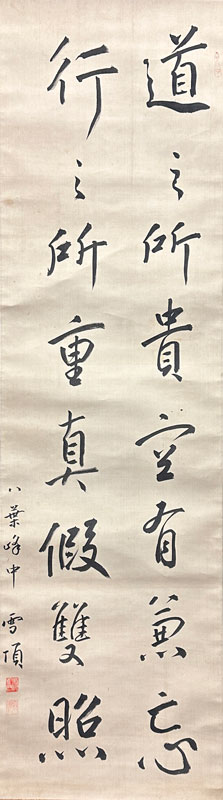 道之所貴空有兼忘
行之所重真假雙照
八葉峰中 雪頂